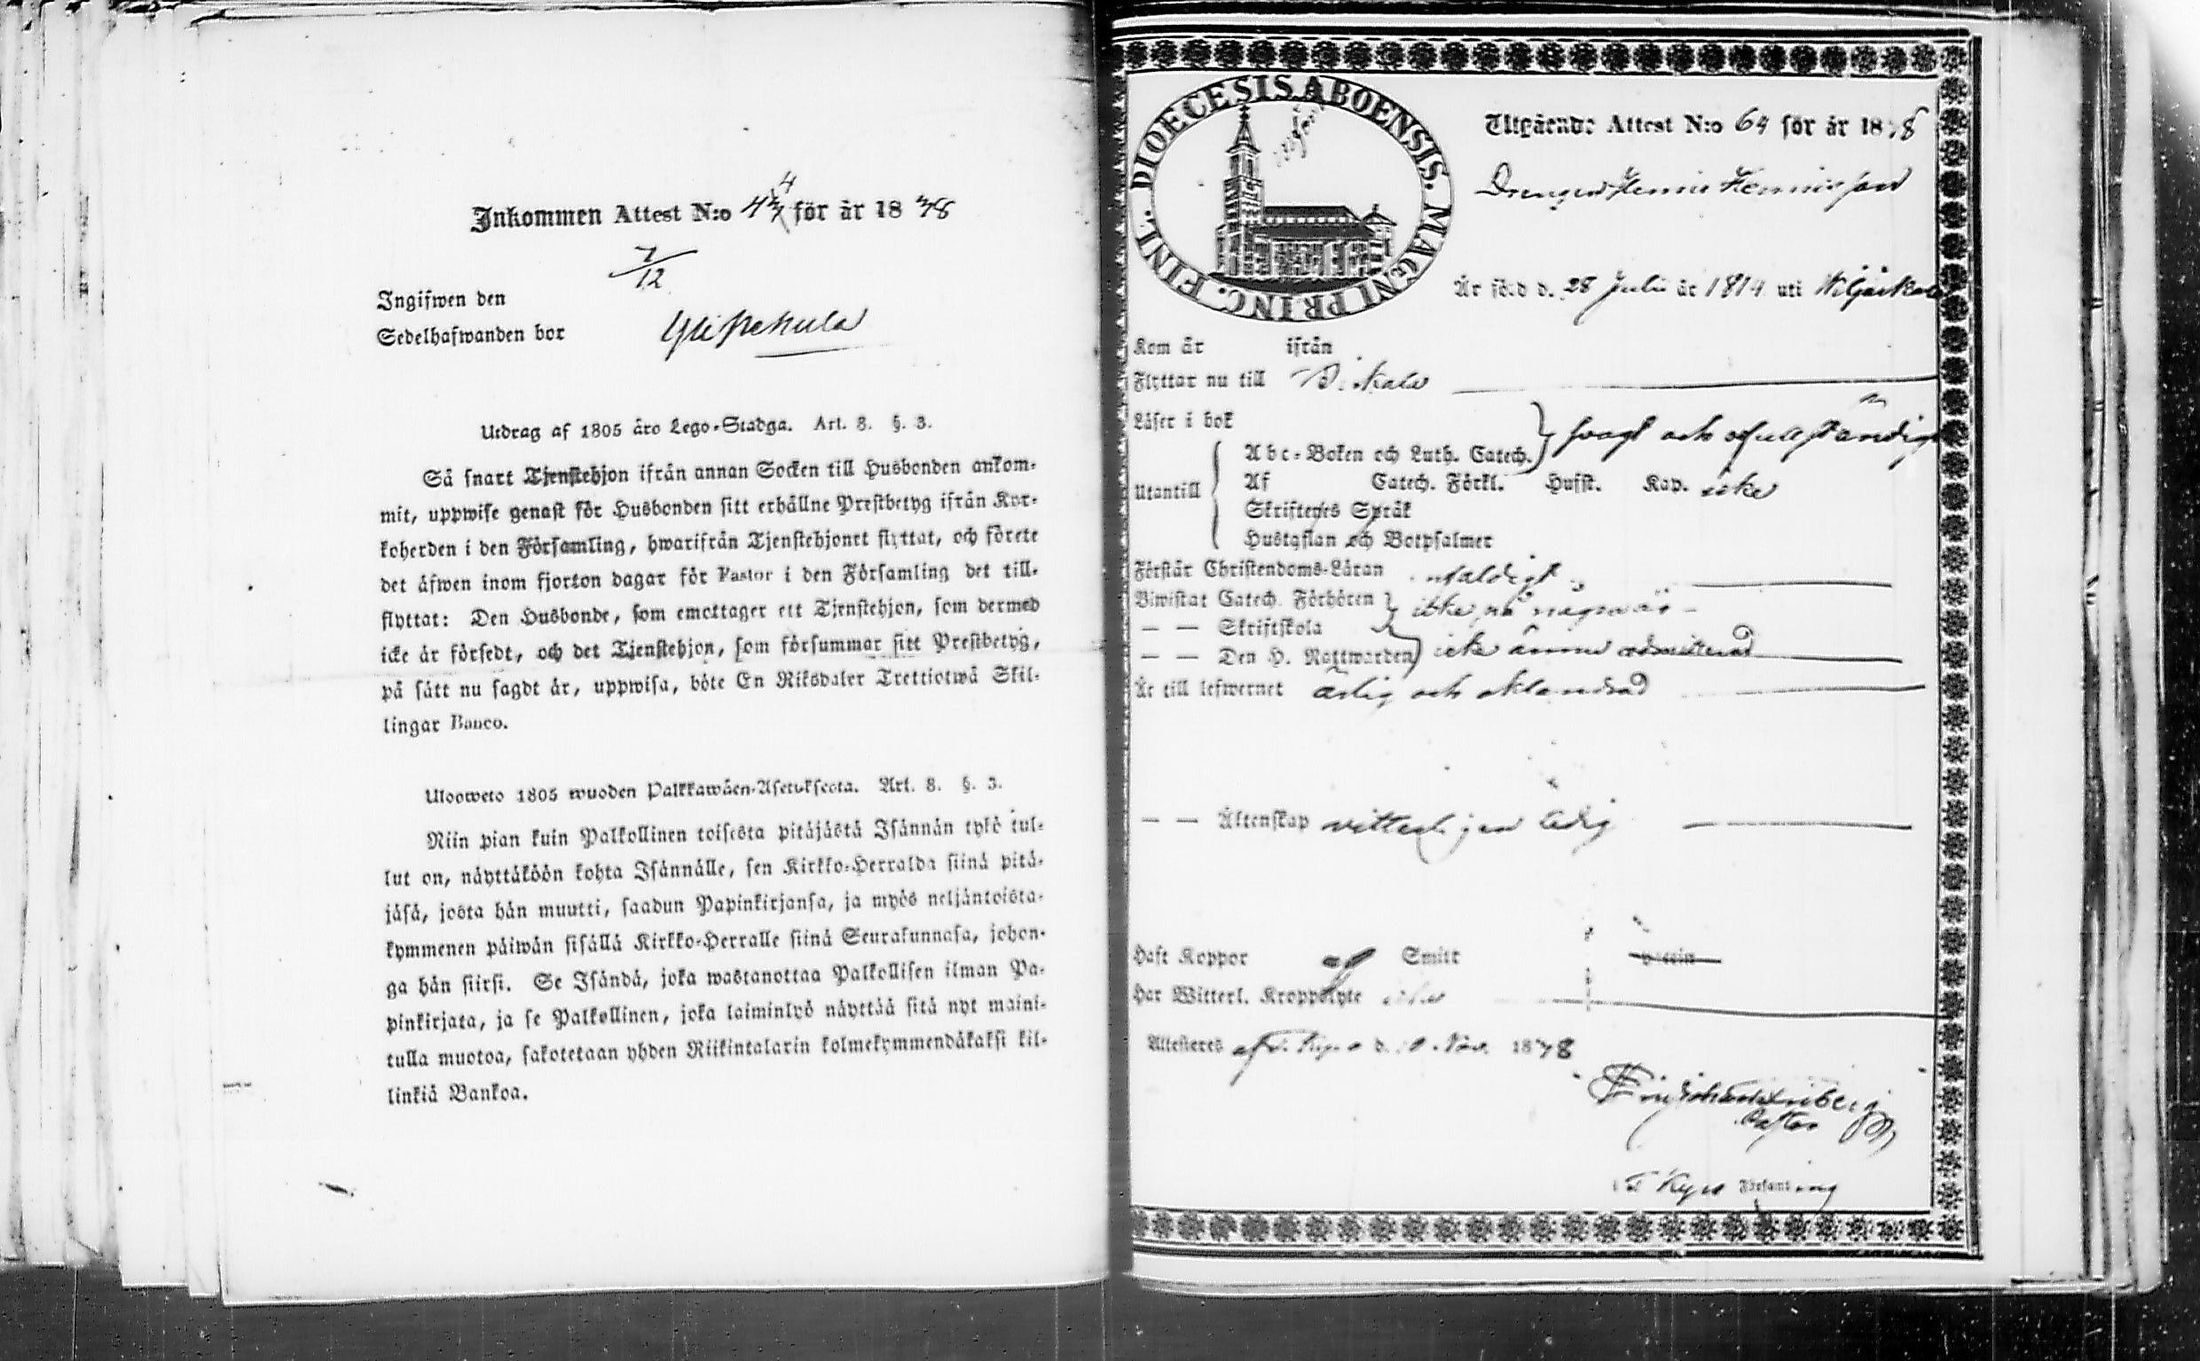 Inkommen Attest N:o 44 för år 1878
7/12
Ingifwen den
Sedelhafwanden bor
Utdrag af 1805 års Lego-Stadga. Art. 8. §. 3.
Så snart Tjenstehjon ifrån annan Socken till Husbonden ankom-
mit, uppwise genast för Husbonden sitt erhållne Prestbetyg ifrån Kyr-
koherden i den Församling, hwarifrån Tjenstehjonet flyttat, och förete
det äfwen inom fjorton dagar för Pastor i den Församling det till-
flyttat: Den Husbonde, som emottager ett Tjenstehjon, som dermed
icke är försedt, och det Tjenstehjon, som försummar sitt Prestbetyg,
på sätt nu sagdt är, uppwisa, böte En Riksdaler Trettiotwå Skil-
lingar Banco.
Uloosweto 1805 wuoden Palkkawäen-Asetuksesta. Art. 8. §. 3.
Niin pian kuin Palkollinen toisesta pitäjästä Isännän tykö tul-
lut on, näyttäköön kohta Isännälle, sen Kirkko-Herralda siinä pitä-
jäsä, josta hän muutti, saadun Papinkirjansa, ja myös neljäntoista-
kymmenen päiwän sisällä Kirkko-Herralle siinä Seurakunnasa, johon-
ga hän siirsi. Se Isändä, joka wastanottaa Palkollisen ilman Pa-
pinkirjata, ja se Palkollinen, joka laiminlyö näyttää sitä nyt maini-
tulla muotoa, sakotetaan yhden Riikintalarin kolmekymmendäkaksi kil-
linkiä Bankoa.
DIOECESIS ABOENSIS. MAGNI PRINC. FINL.
Utgående Attest N:o 64 för år 1878
Drengen Henric Henricsson
Är född d. 28 Juli år 1814 uti Wiljakkala
Kom år ifrån
Flyttar nu till
Läser i bok
Abc-Boken och Luth. Catech. svagt och ofullständigt
Utantill
Af Catech. Förkl. Husst. Kap. icke
Skriftenes Språk
Hustaflan och Botpsalmer
Förstår Christendoms-Läran
Biwistat Catech. Förhören icke på några år
— — Skriftskola
— — Den H. Nattwarden icke ännu admitterad
Är till lefwernet ärlig och oklandrad
— — Äktenskap vitterligen ledig
Haft Koppor af Smitt
Har Witterl. Kroppslyte icke
Attesteras af T. Kyro d. 10 Nov. 1878
Pastor
i T. Kyro Församling